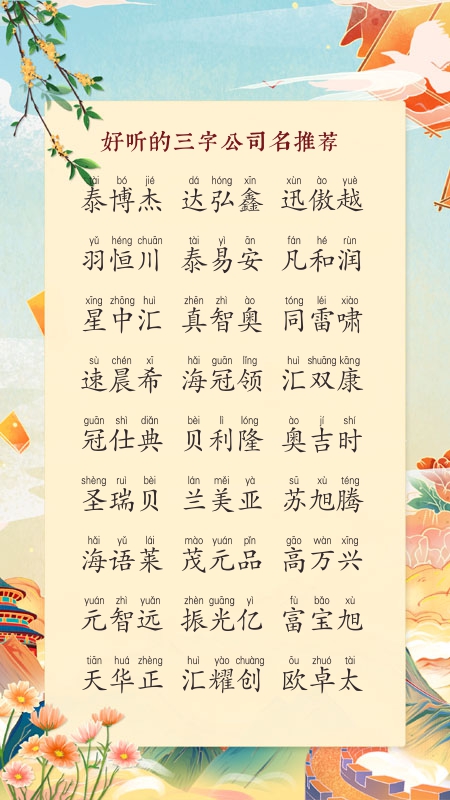 好听的三字公司名推荐
tài bó jié dá hóng xīn xùn ào yuè
泰博杰 达弘鑫 迅傲越
yǔ héng chuān tài yì ān fán hé rùn
羽恒川 泰易安 凡和润
xīng zhōng huì zhēn zhì ào tóng léi xiào
星中汇 真智奥 同雷啸
sù chén xī hǎi guān lǐng huì shuāng kāng
速晨希 海冠领 汇双康
guān shì diǎn bèi lì lóng ào jí shí
冠仕典 贝利隆 奥吉时
shèng ruì bèi lán měi yà sū xù téng
圣瑞贝 兰美亚 苏旭腾
hǎi yǔ lái mào yuán pǐn gāo wàn xīng
海语莱 茂元品 高万兴
yuán zhì yuǎn zhèn guāng yì fù bǎo xù
元智远 振光亿 富宝旭
tiān huá zhèng huì yào chuàng ōu zhuó tài
天华正 汇耀创 欧卓太